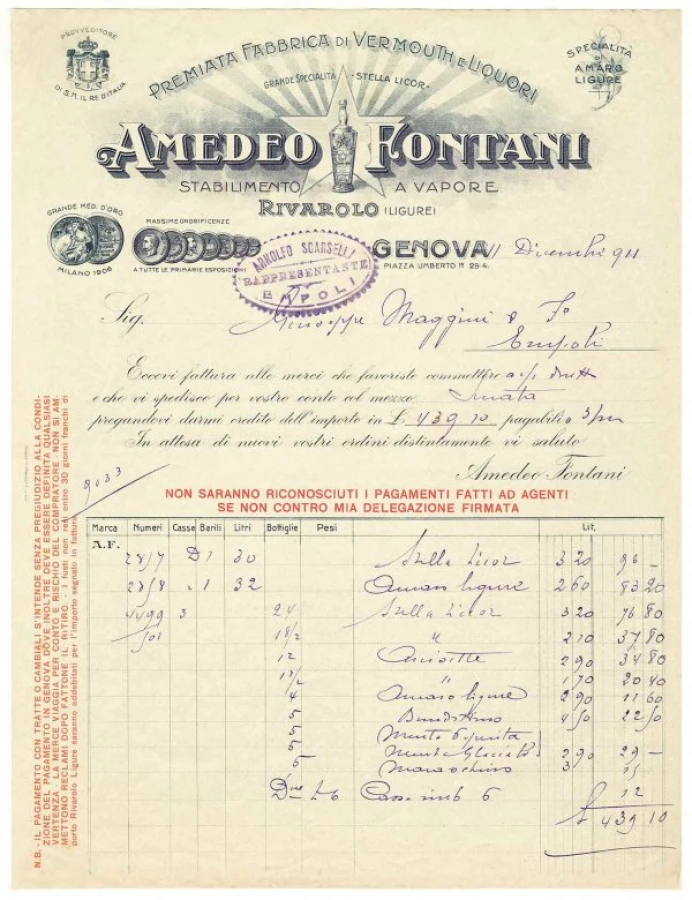 PROVVEDITORE
DI S.M. IL RE D'ITALIA
PREMIATA FABBRICA DI VERMOUTH E LIQUORI
GRANDE SPECIALITÀ "STELLA LICOR"
SPECIALITÀ
AMARO
LIGURE
AMEDEO FONTANI
STABILIMENTO A VAPORE
RIVAROLO (LIGURE)
GRANDE MED. D'ORO
MILANO 1906
MASSIME ONORIFICENZE
A TUTTE LE PRIMARIE ESPOSIZIONI
ARNOLFO SCARSELLI
RAPPRESENTANTE
EMPOLI
GENOVA 11 Dicembre 911
PIAZZA UMBERTO Iº 29-4.
Sig. Giuseppe Maggini & Fº
Empoli
Eccovi fattura alle merci che favoriste commettere
e che vi spedisco per vostro conto col mezzo
pregandovi darmi credito dell'importo in L. 439.10 pagabili a 3/m
In attesa di nuovi vostri ordini distintamente vi saluto
Amedeo Fontani
9033
NON SARANNO RICONOSCIUTI I PAGAMENTI FATTI AD AGENTI
SE NON CONTRO MIA DELEGAZIONE FIRMATA
Marca Numeri Casse Barili Litri Bottiglie Pesi Lit.
A.F.
28/7 D 1 30 Stella Licor 3 20 96 —
28/8 " 1 32 Amaro ligure 2 60 83 20
4499 3 24 Stella Licor 3 20 76 80
/501 18/2 " 2 10 37 80
12 Anisette 2 90 34 80
12/2 " 1 70 20 40
4 Amaro ligure 2 90 11 60
5 4 50 22 50
5 Menta
5 Menta Glaciale 2 90 29 —
5 Maraschino 3 15
Casse 6 12
£ 439 10
N.B. - IL PAGAMENTO CON TRATTE O CAMBIALI S'INTENDE SENZA PREGIUDIZIO ALLA CONDI-
ZIONE DEL PAGAMENTO IN GENOVA DOVE INOLTRE DEVE ESSERE DEFINITA QUALSIASI
VERTENZA. - LA MERCE VIAGGIA PER CONTO E RISCHIO DEL COMPRATORE - NON SI AM-
METTONO RECLAMI DOPO FATTONE IL RITIRO. - I fusti non resi entro 30 giorni franchi di
porto Rivarolo Ligure saranno addebitati per l'importo segnato in fattura.